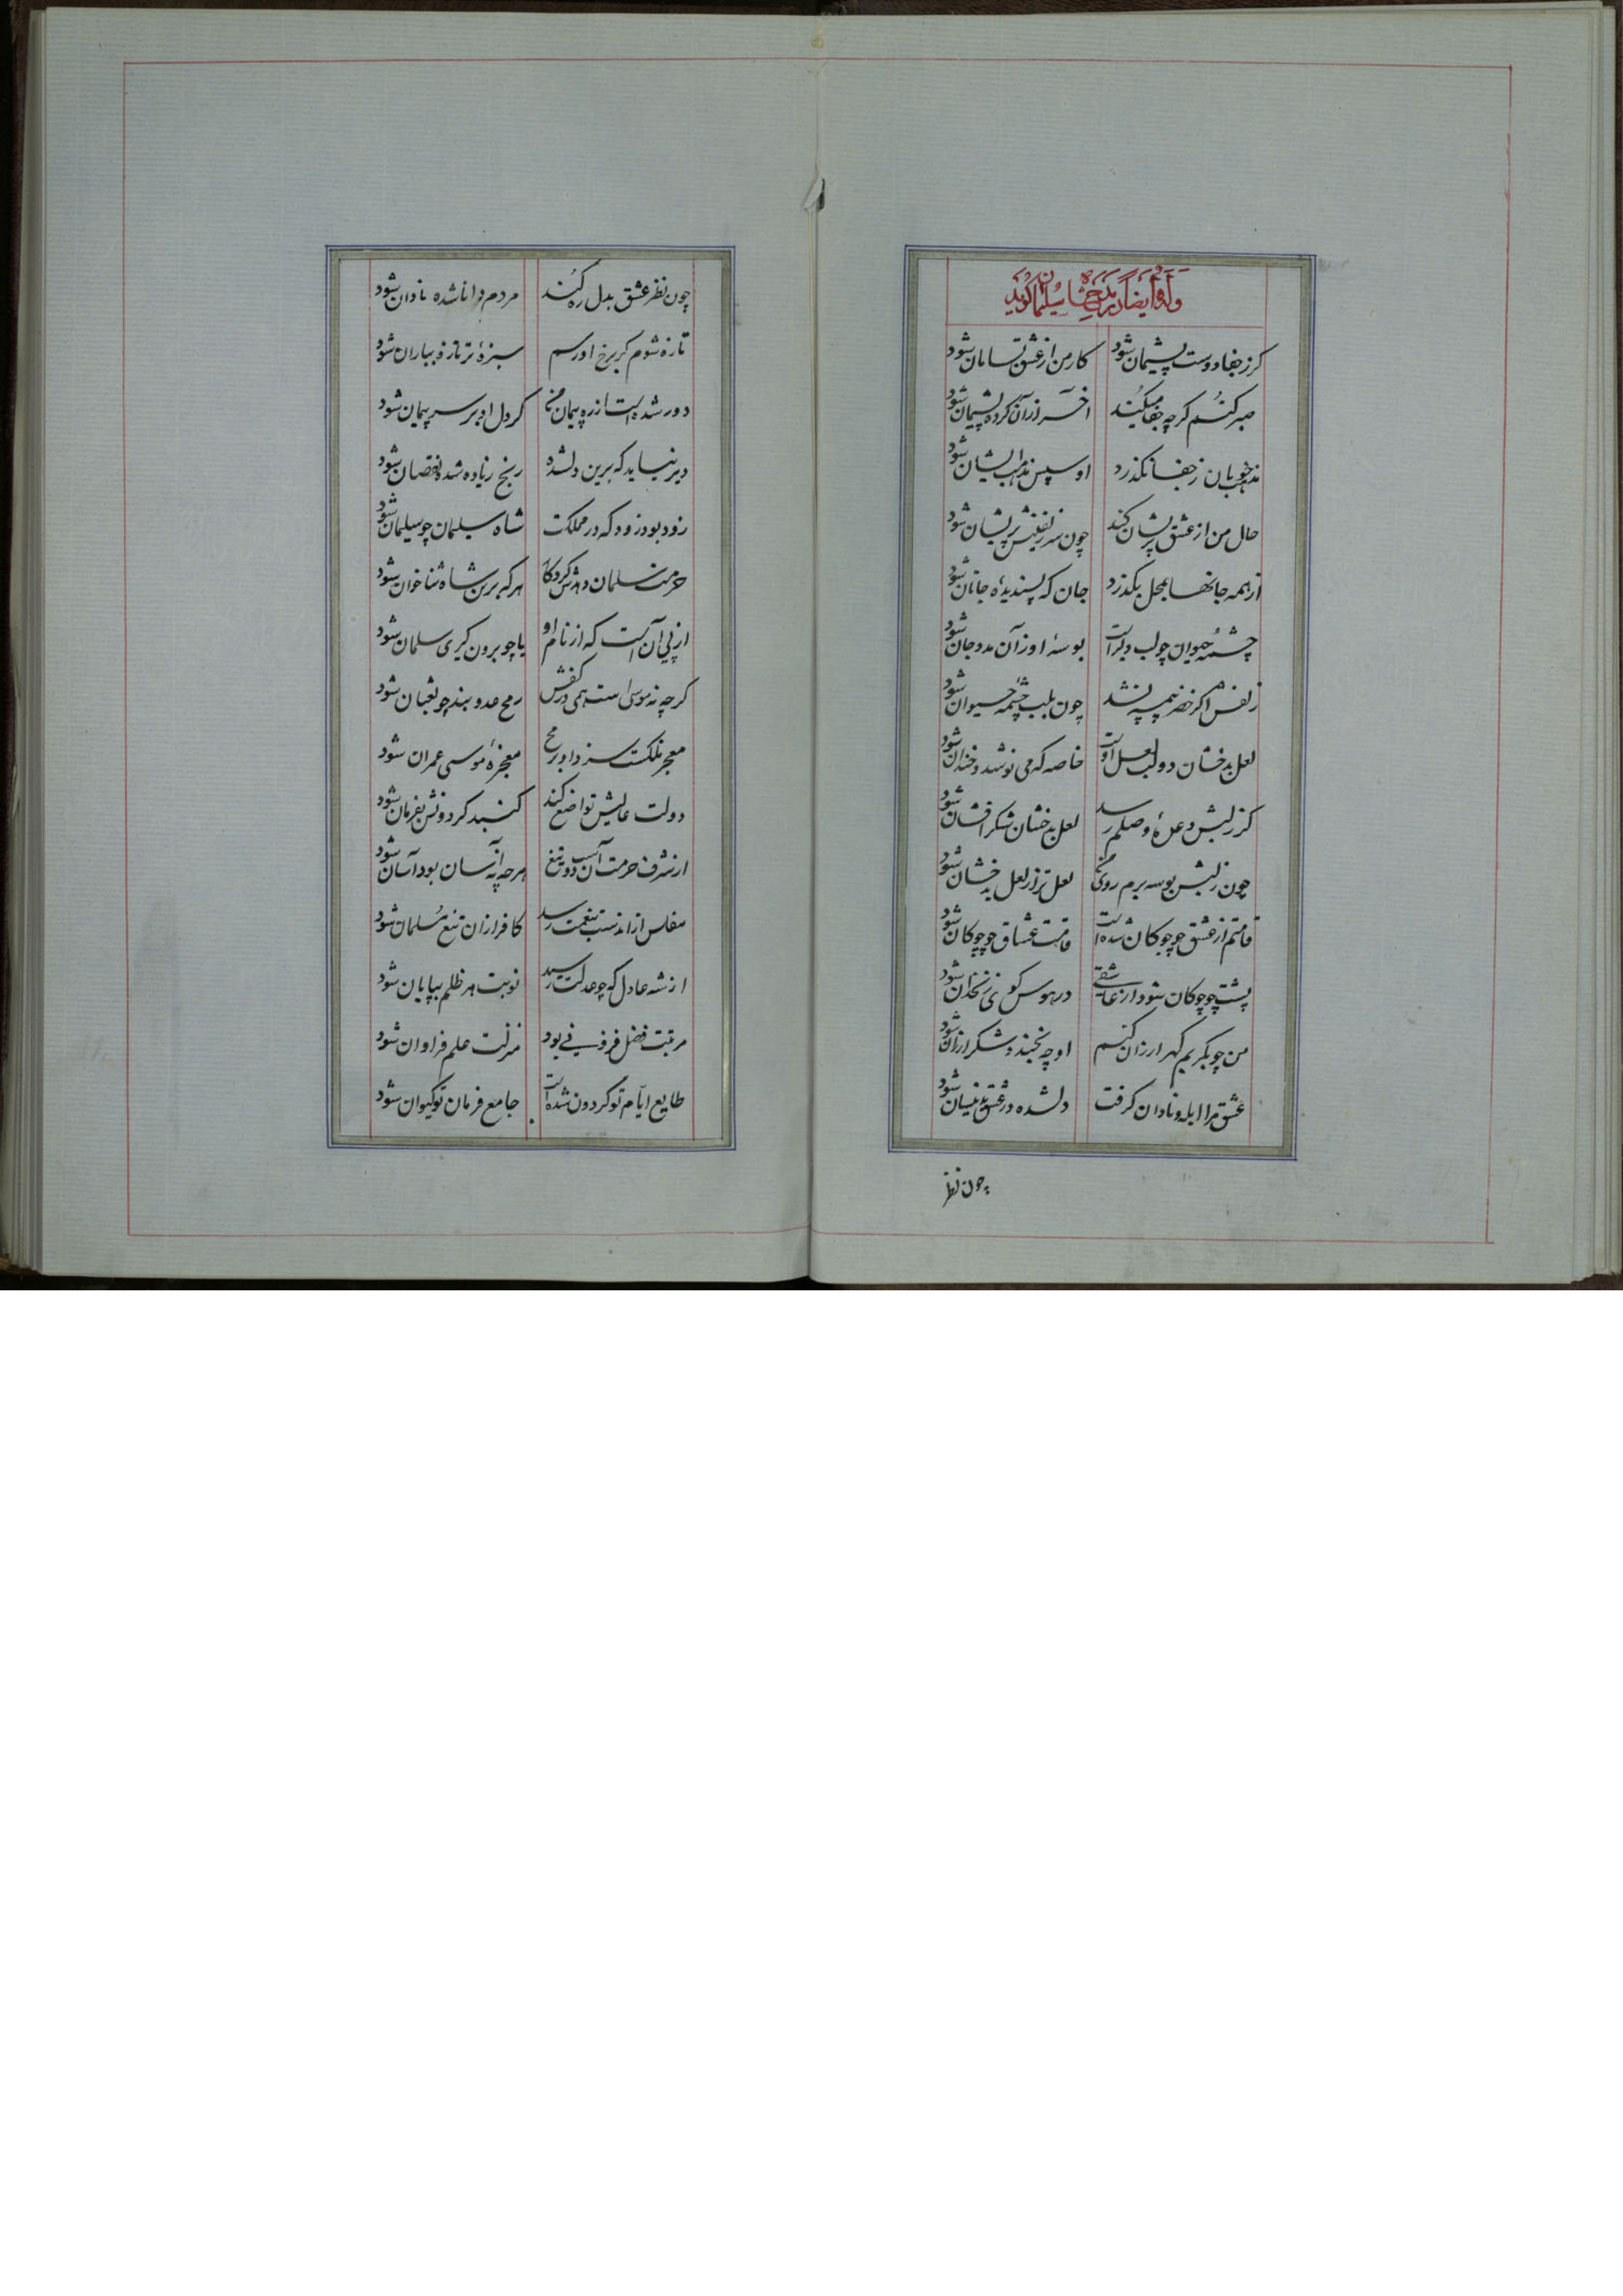 وله ایضاً در مدح شاه سلیمان گوید
کر ز جفا دوست پشیمان شود کار من از عشق بسامان شود
صبر کنم کرچه جفا میکند آخر از آن کرده پشیمان شود
مذهب خوبان ز جفا نکذرد او سپس مذهب ایشان شود
حال من از عشق پریشان کند چون سر زلفینش پریشان شود
از همه جانها بمحل بکذرد جان که پسندیده جانان شود
چشمه حیوان چو لب دلبر است بوسه او زان مدد جان شود
زلفش اکر خضر نیمپسندشد چون بلب چشمه حیوان شود
لعل بدخشان دو لب لعل اوست خاصه که می نوشد و خندان شود
کز لبش وعدهٔ وصلم رسد لعل بدخشان شکرافشان شود
چون ز لبش بوسه برم روی من لعل تر از لعل بدخشان شود
قامتم از عشق چو چوکان شده است قامت عشاق چو چوکان شود
پشت چو چوکان شود از عاشقی در هوس کوی زنخدان شود
من چو بکریم کهر ارزان کنم او چه بخندد شکر ارزان شود
عشق مرا ابله و نادان کرفت دلشده در عشق بدینسان شود
چون نظر
چون نظر عشق بدل ره کند مردم دانا شده نادان شود
تازه شوم کر برخ او رسم سبزهٔ تر تازه بباران شود
دور شده است از ره پیمان من کر دل او بر سر پیمان شود
دیر نیاید که برین دلشده رنج زیاده شده نقصان شود
زود بود زود که در مملکت شاه سلیمان چو سلیمان شود
حرمت سلمان دهدش کردکار هر که برین شاه ثناخوان شود
از پی آن است که از نام او یا چو برون کیری سلمان شود
کرچه نه موسی است همی در کفش رمح عدو بند چو ثعبان شود
معجز ملکت سزد او رمح معجزهٔ موسی عمران شود
دولت عالیش تواضع کند کنبد کردونش بفرمان شود
از شرف حرمت آن اسب و تیغ هرچه نه آسان بود آسان شود
مفلس از آن دست بنعمت رسد کافر از آن تیغ مسلمان شود
از شه عادل که چو عدلت رسید نوبت هر ظلم بپایان شود
مرتبت فضل فزونی بود منزلت علم فراوان شود
طایع ایام تو کردون شده است جامع فرمان تو کیوان شود